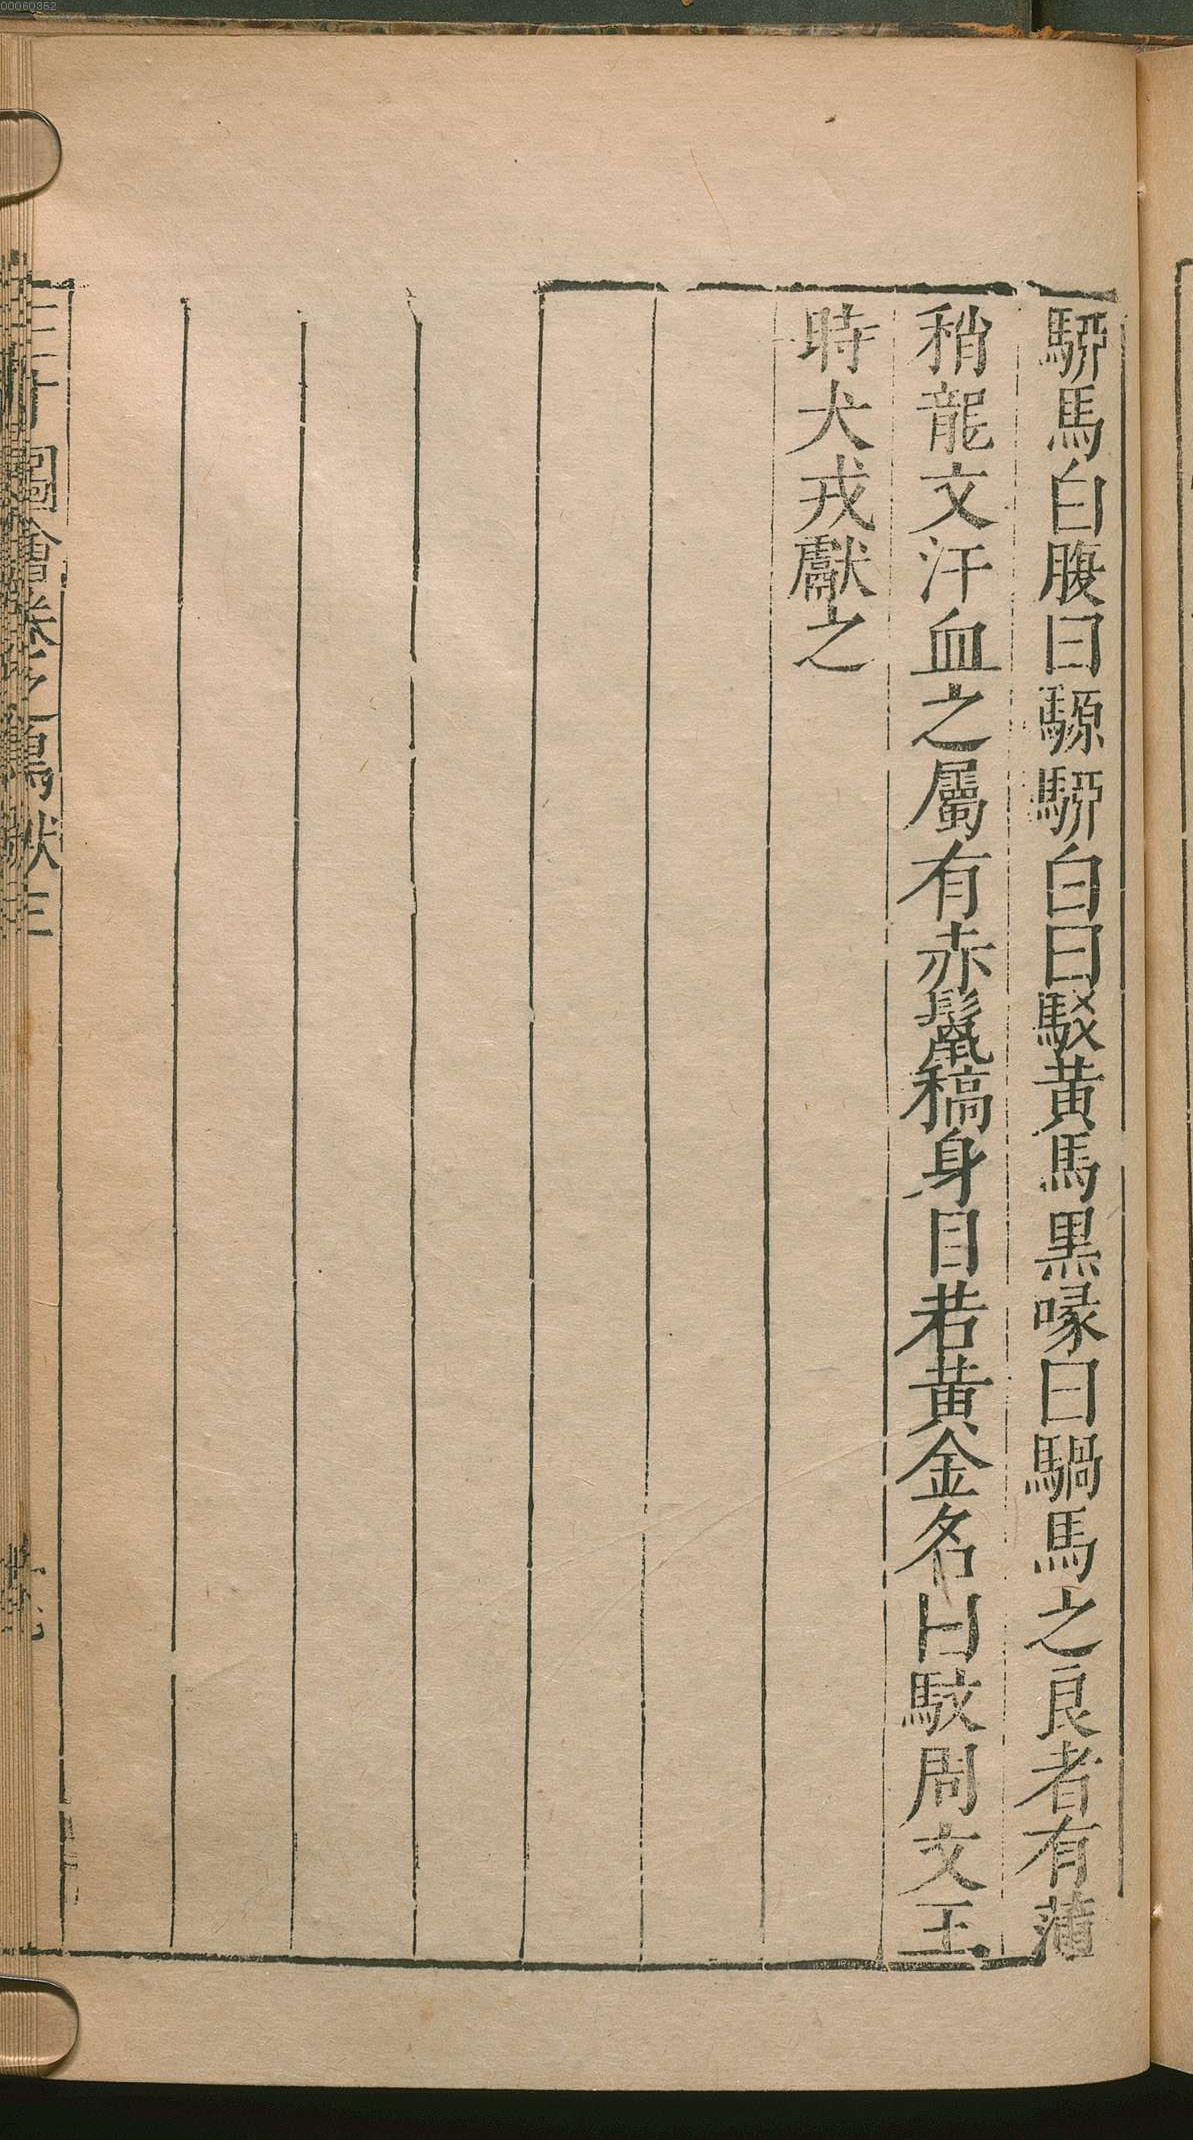 騂馬白腹曰騵騂白曰駁黃馬黑喙曰騧馬之良者有蒲
稍龍文汗血之屬有赤鬣稿身目若黃金名曰馼周文王
時犬戎獻之
三才圖會卷之鳥獸三
00060352